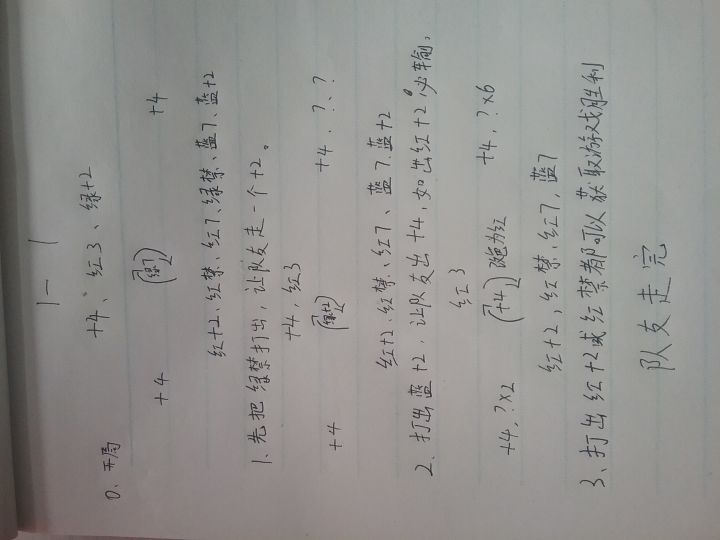 1-1
0、开局
+4、红3、绿+2
+4 (绿7) +4
红+2、红禁、红7、绿禁、蓝7、蓝+2
1、先把绿禁打出，让队友走一个+2。
+4，红3
+4 (绿+2) +4、?、?
红+2、红禁、红7、蓝7、蓝+2
2、打出蓝+2，让队友出+4，如出红+2必输。
红3
+4，?×2 (+4) 改色为红 +4，?×6
红+2，红禁、红7，蓝7
3、打出红+2或红禁都可以获取游戏胜利
队友走完